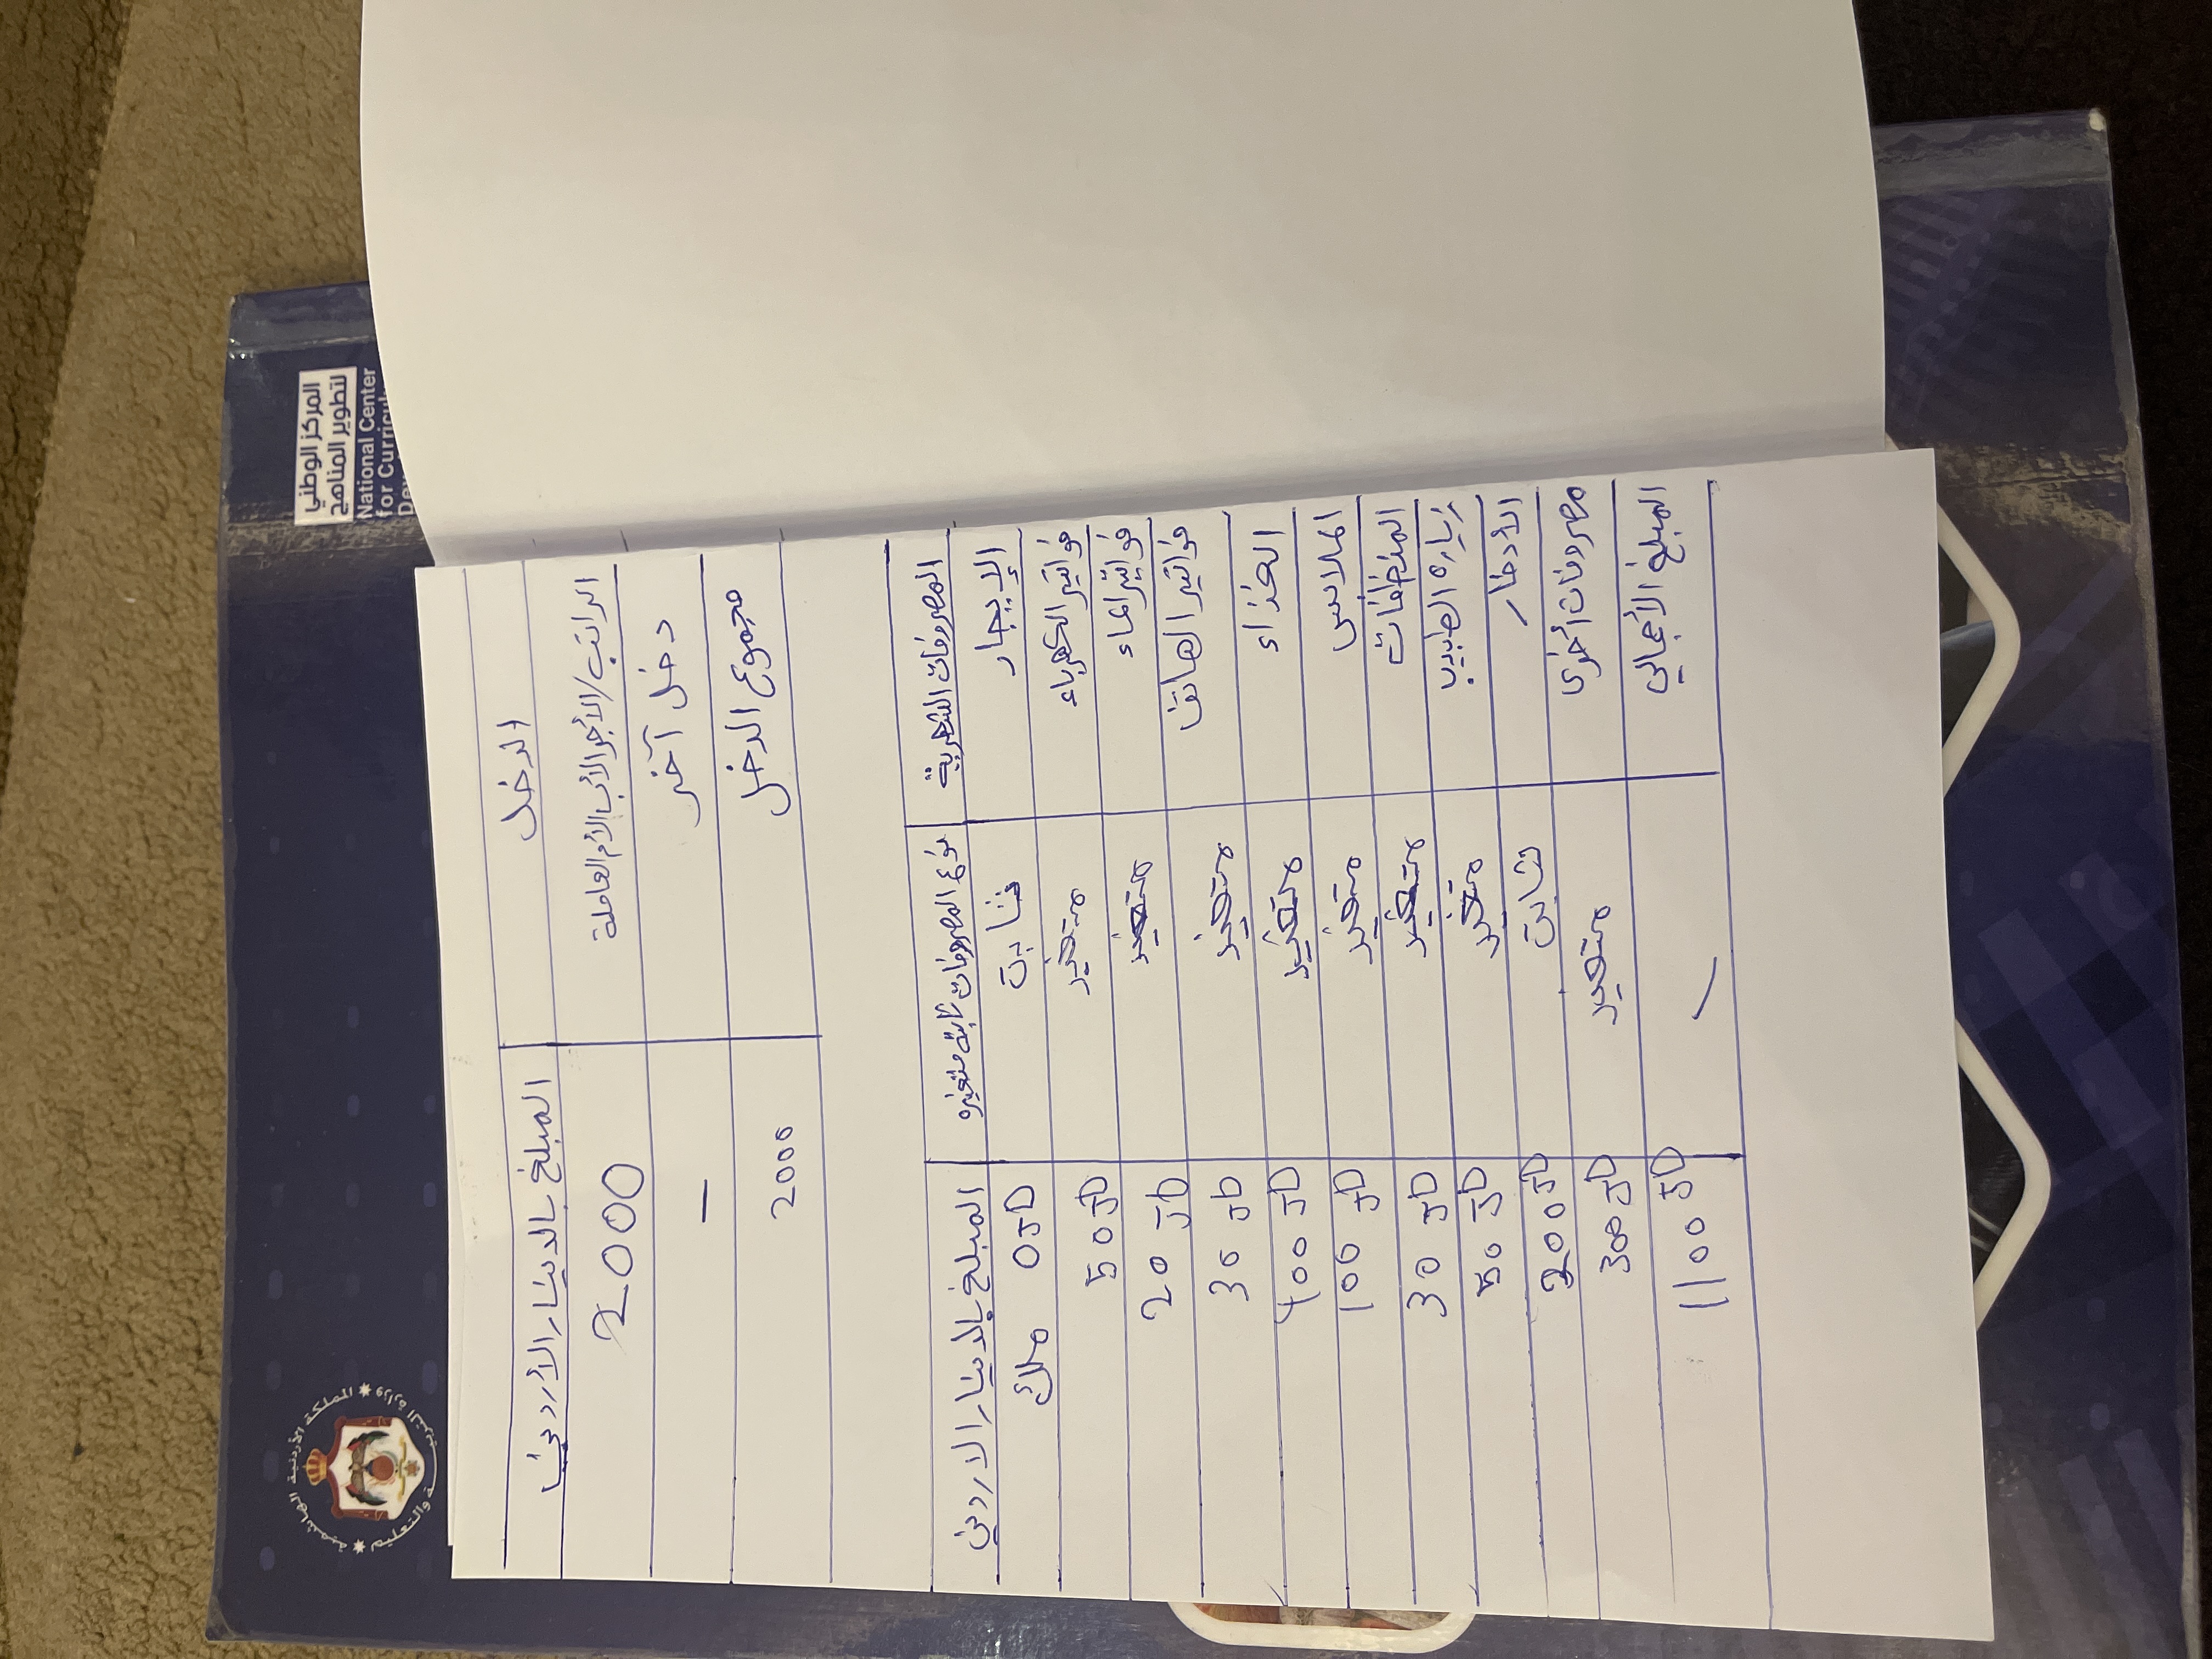 المركز الوطني
لتطوير المناهج
National Center
for Curricul
Dev
الدخل المبلغ بالدينار الأردني
الراتب/الأجر الأب الأم العاملة 2000
دخل آخر -
مجموع الدخل 2000
المصروفات الشهرية نوع المصروفات ثابتة متغيره المبلغ بالدينار الاردني
الإيجار ثابت 0JD ملك
فواتير الكهرباء متغير 50JD
فواتير الماء متغير 20 JD
فواتير الهاتف متغير 30 JD
الغذاء متغير 400 JD
الملابس متغير 100 JD
المنظفات متغير 30 JD
زياره الطبيب متغير 50 JD
الادخار ثابت 200JD
مصروفات أخرى متغير 300 JD
المبلغ الأجمالي - 1100 JD
المملكة الأردنية الهاشمية
وزارة التربية والتعليم